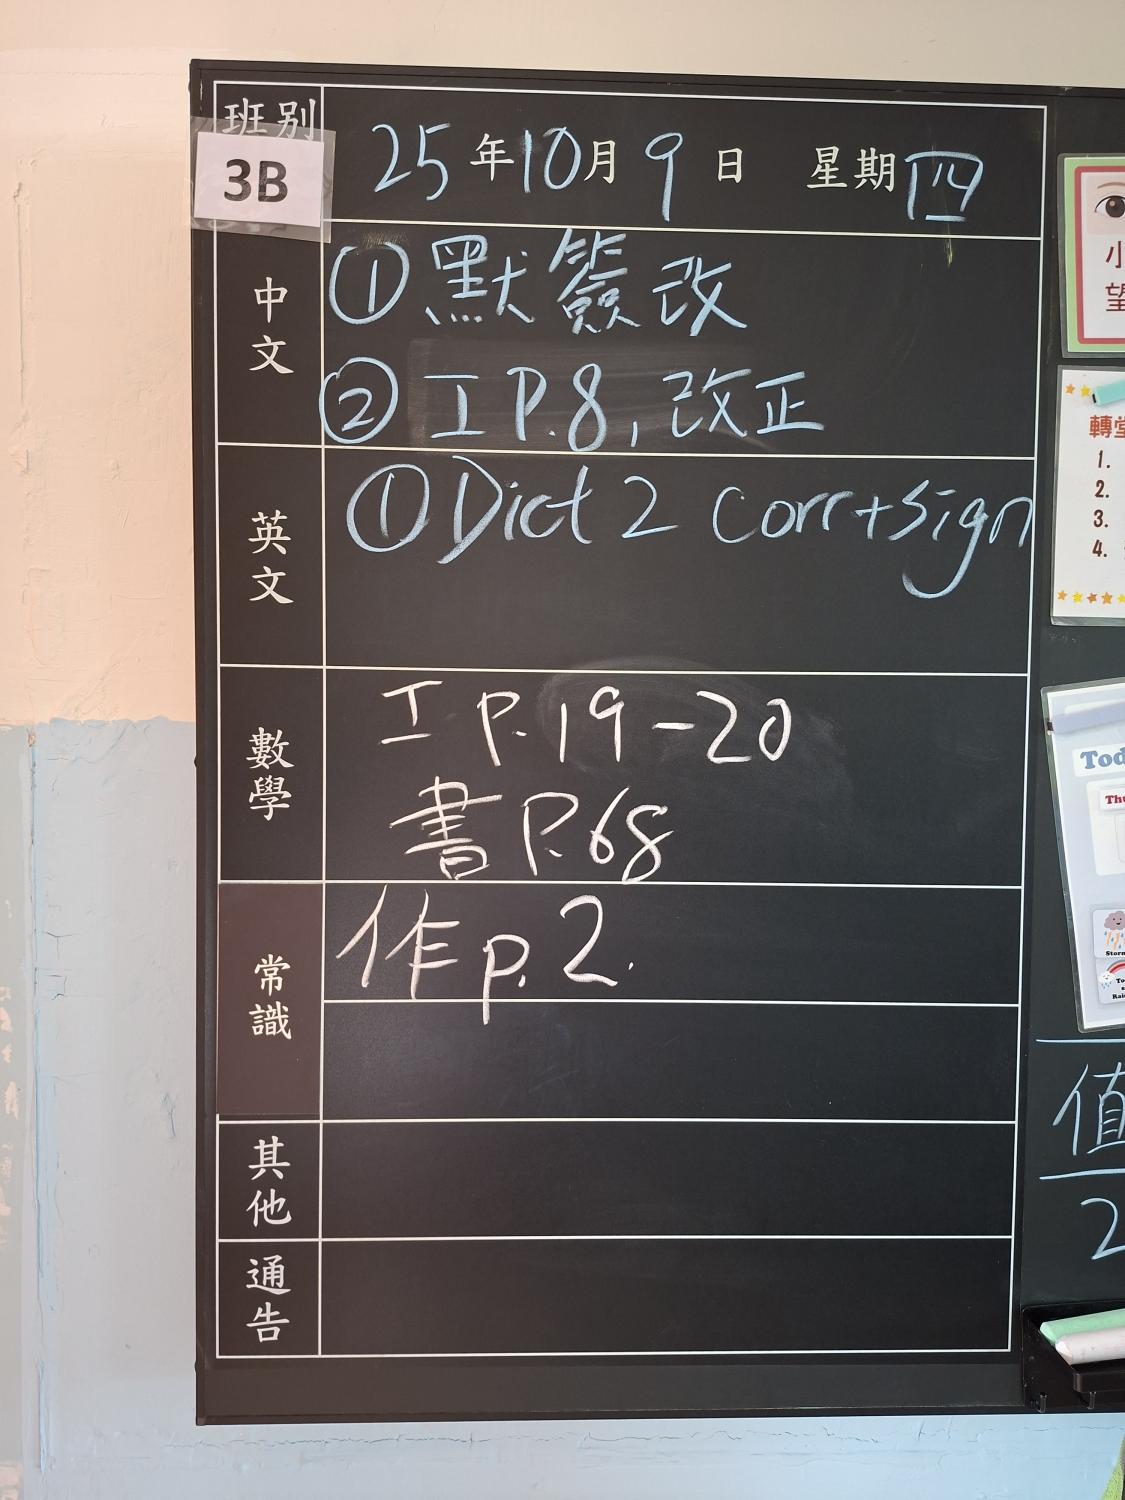 班別
3B
25年10月9日 星期四
中文
①默簽改
②工P.8,改正
英文
①Dict 2 corr+sign
數學
工P.19-20
書P.68
常識
作p.2.
其他
通告
小
望
轉堂
1.
2.
3.
4.
Tod
Thu
Storm
Rain
值
2